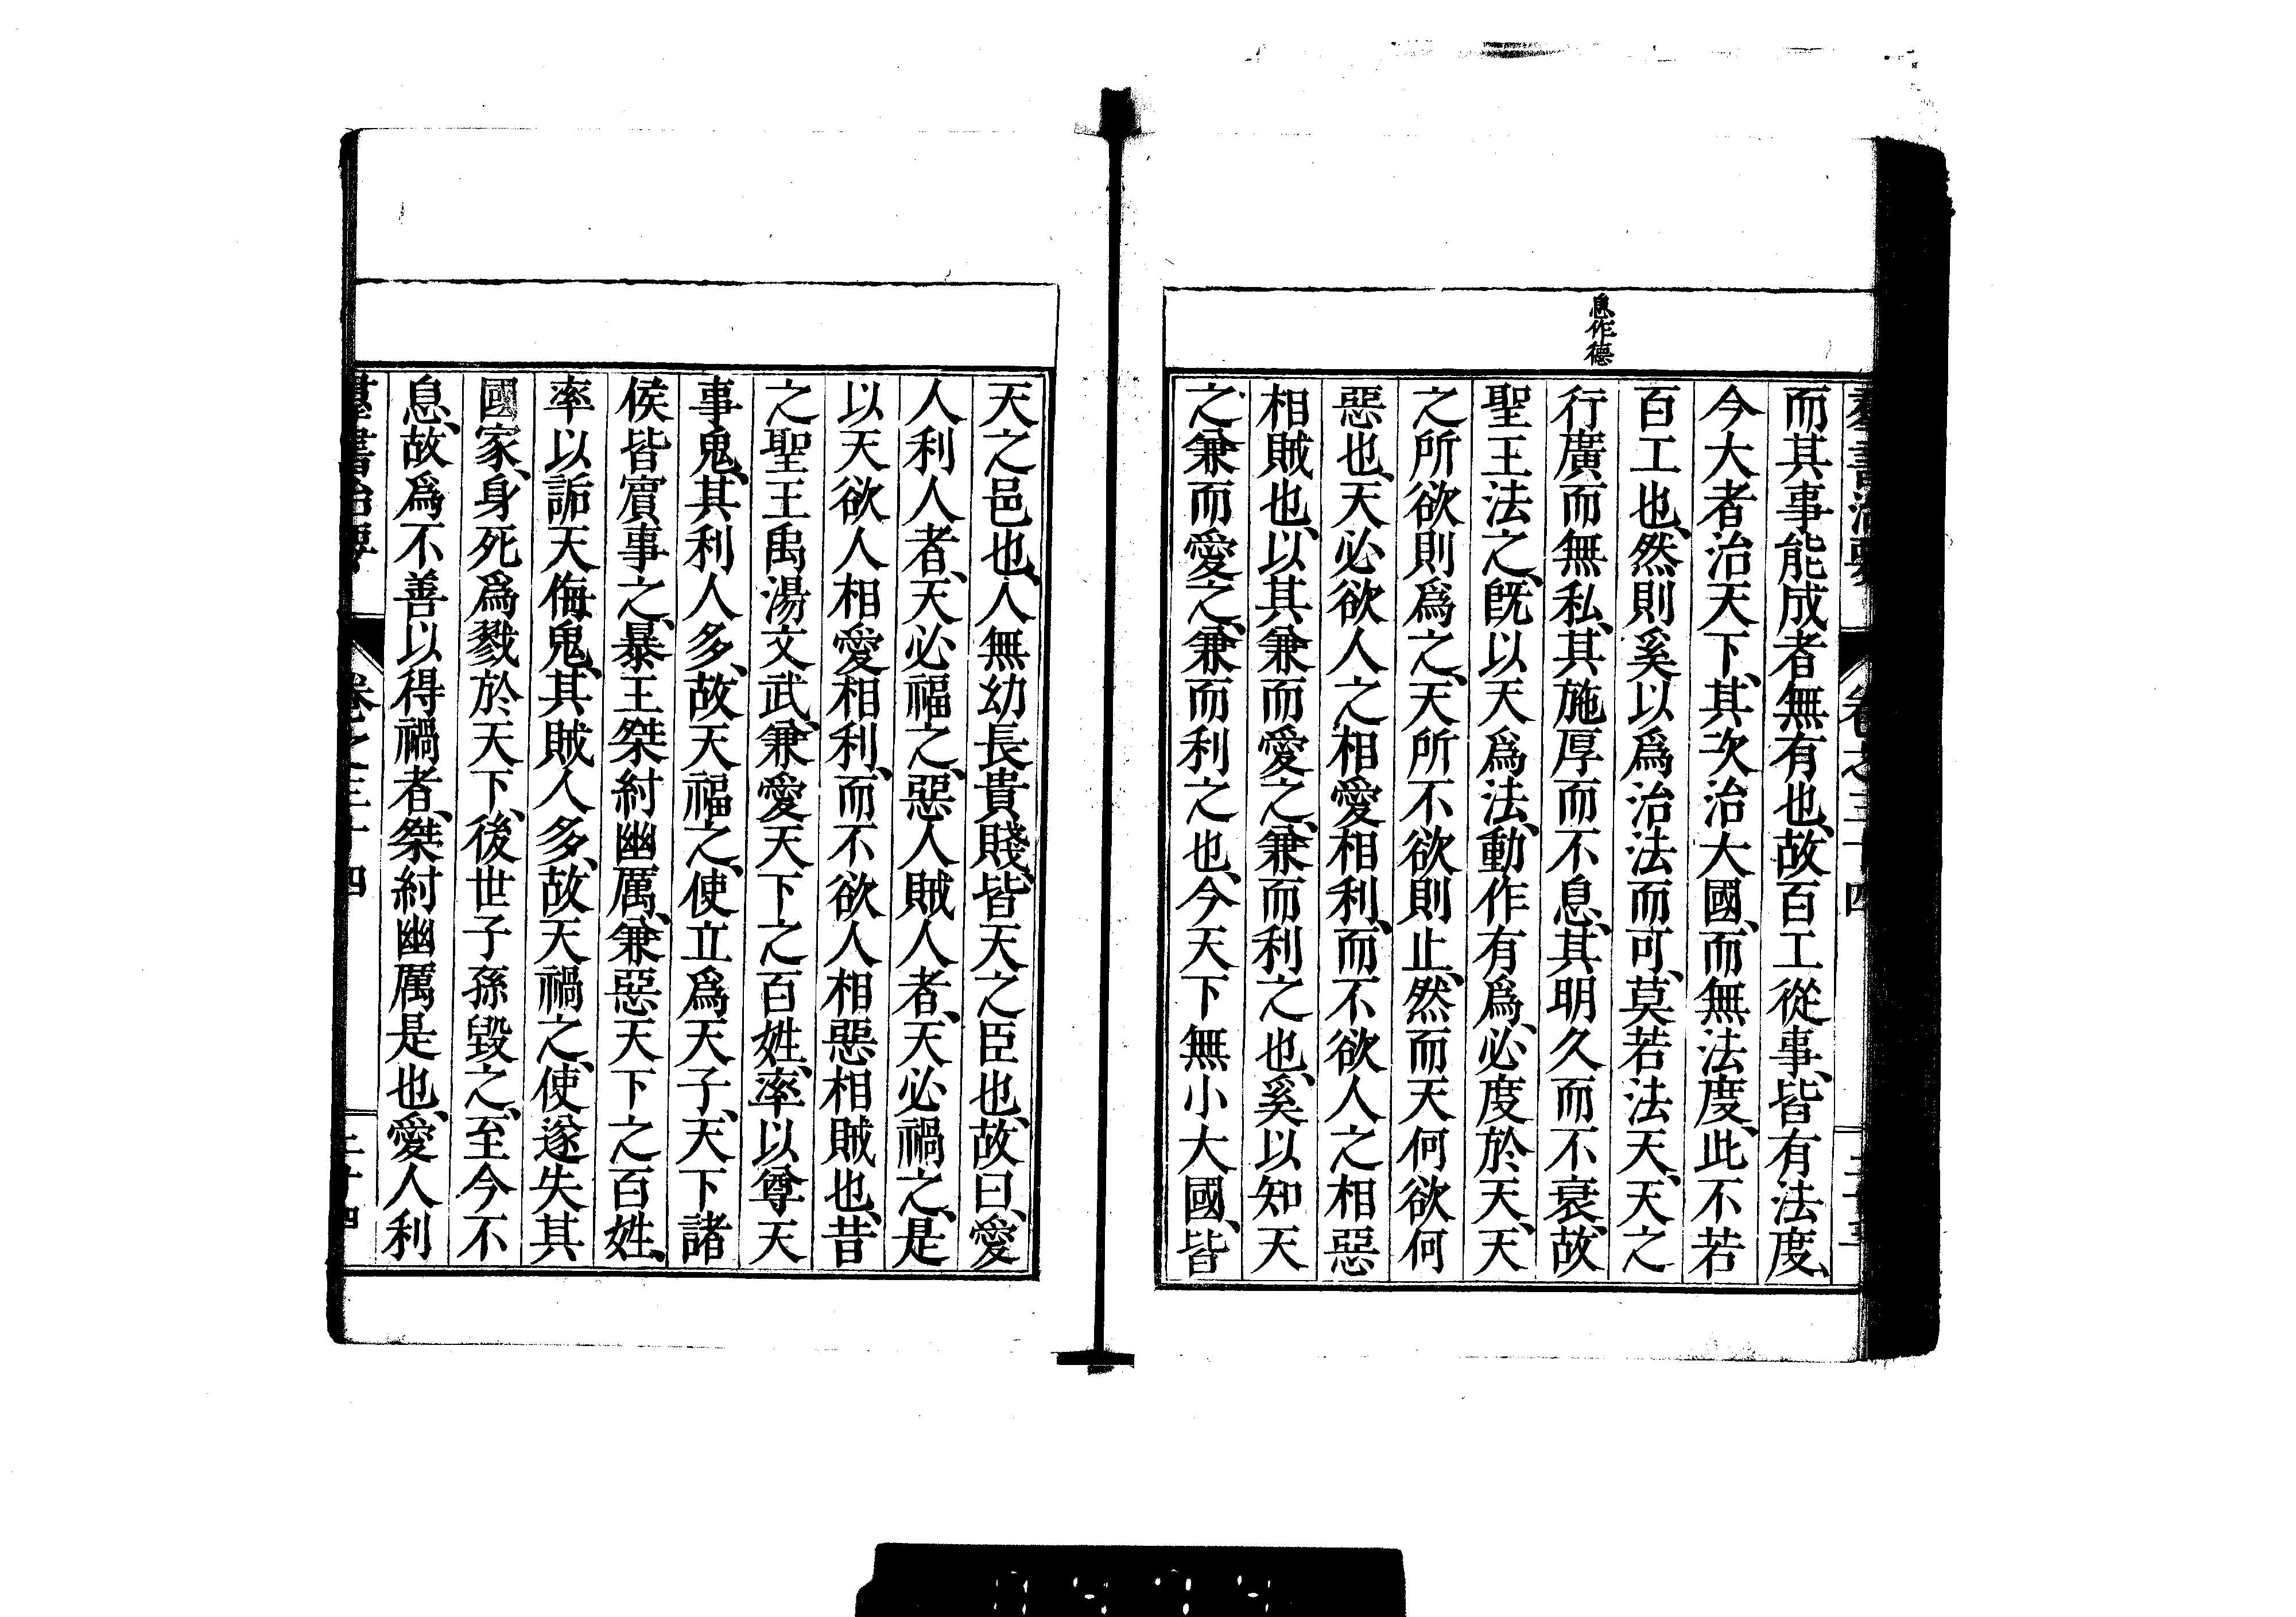 息作德
而其事能成者無有也、故百工從事、皆有法度、
今大者治天下、其次治大國、而無法度、此不若
百工也、然則奚以爲治法而可、莫若法天、天之
行廣而無私、其施厚而不息、其明久而不衰、故
聖王法之、既以天爲法、動作有爲、必度於天、天
之所欲則爲之、天所不欲則止、然而天何欲何
惡也、天必欲人之相愛相利、而不欲人之相惡
相賊也、以其兼而愛之、兼而利之也、奚以知天
之兼而愛之、兼而利之也、今天下無小大國、皆
天之邑也、人無幼長貴賤、皆天之臣也、故曰、愛
人利人者、天必福之、惡人賊人者、天必禍之、是
以天欲人相愛相利、而不欲人相惡相賊也、昔
之聖王禹湯文武、兼愛天下之百姓、率以尊天
事鬼、其利人多、故天福之、使立爲天子、天下諸
侯皆賓事之、暴王桀紂幽厲、兼惡天下之百姓、
率以詬天侮鬼、其賊人多、故天禍之、使遂失其
國家、身死爲戮於天下、後世子孫毀之、至今不
息、故爲不善以得禍者、桀紂幽厲是也、愛人利
羣書治要 卷之三十四